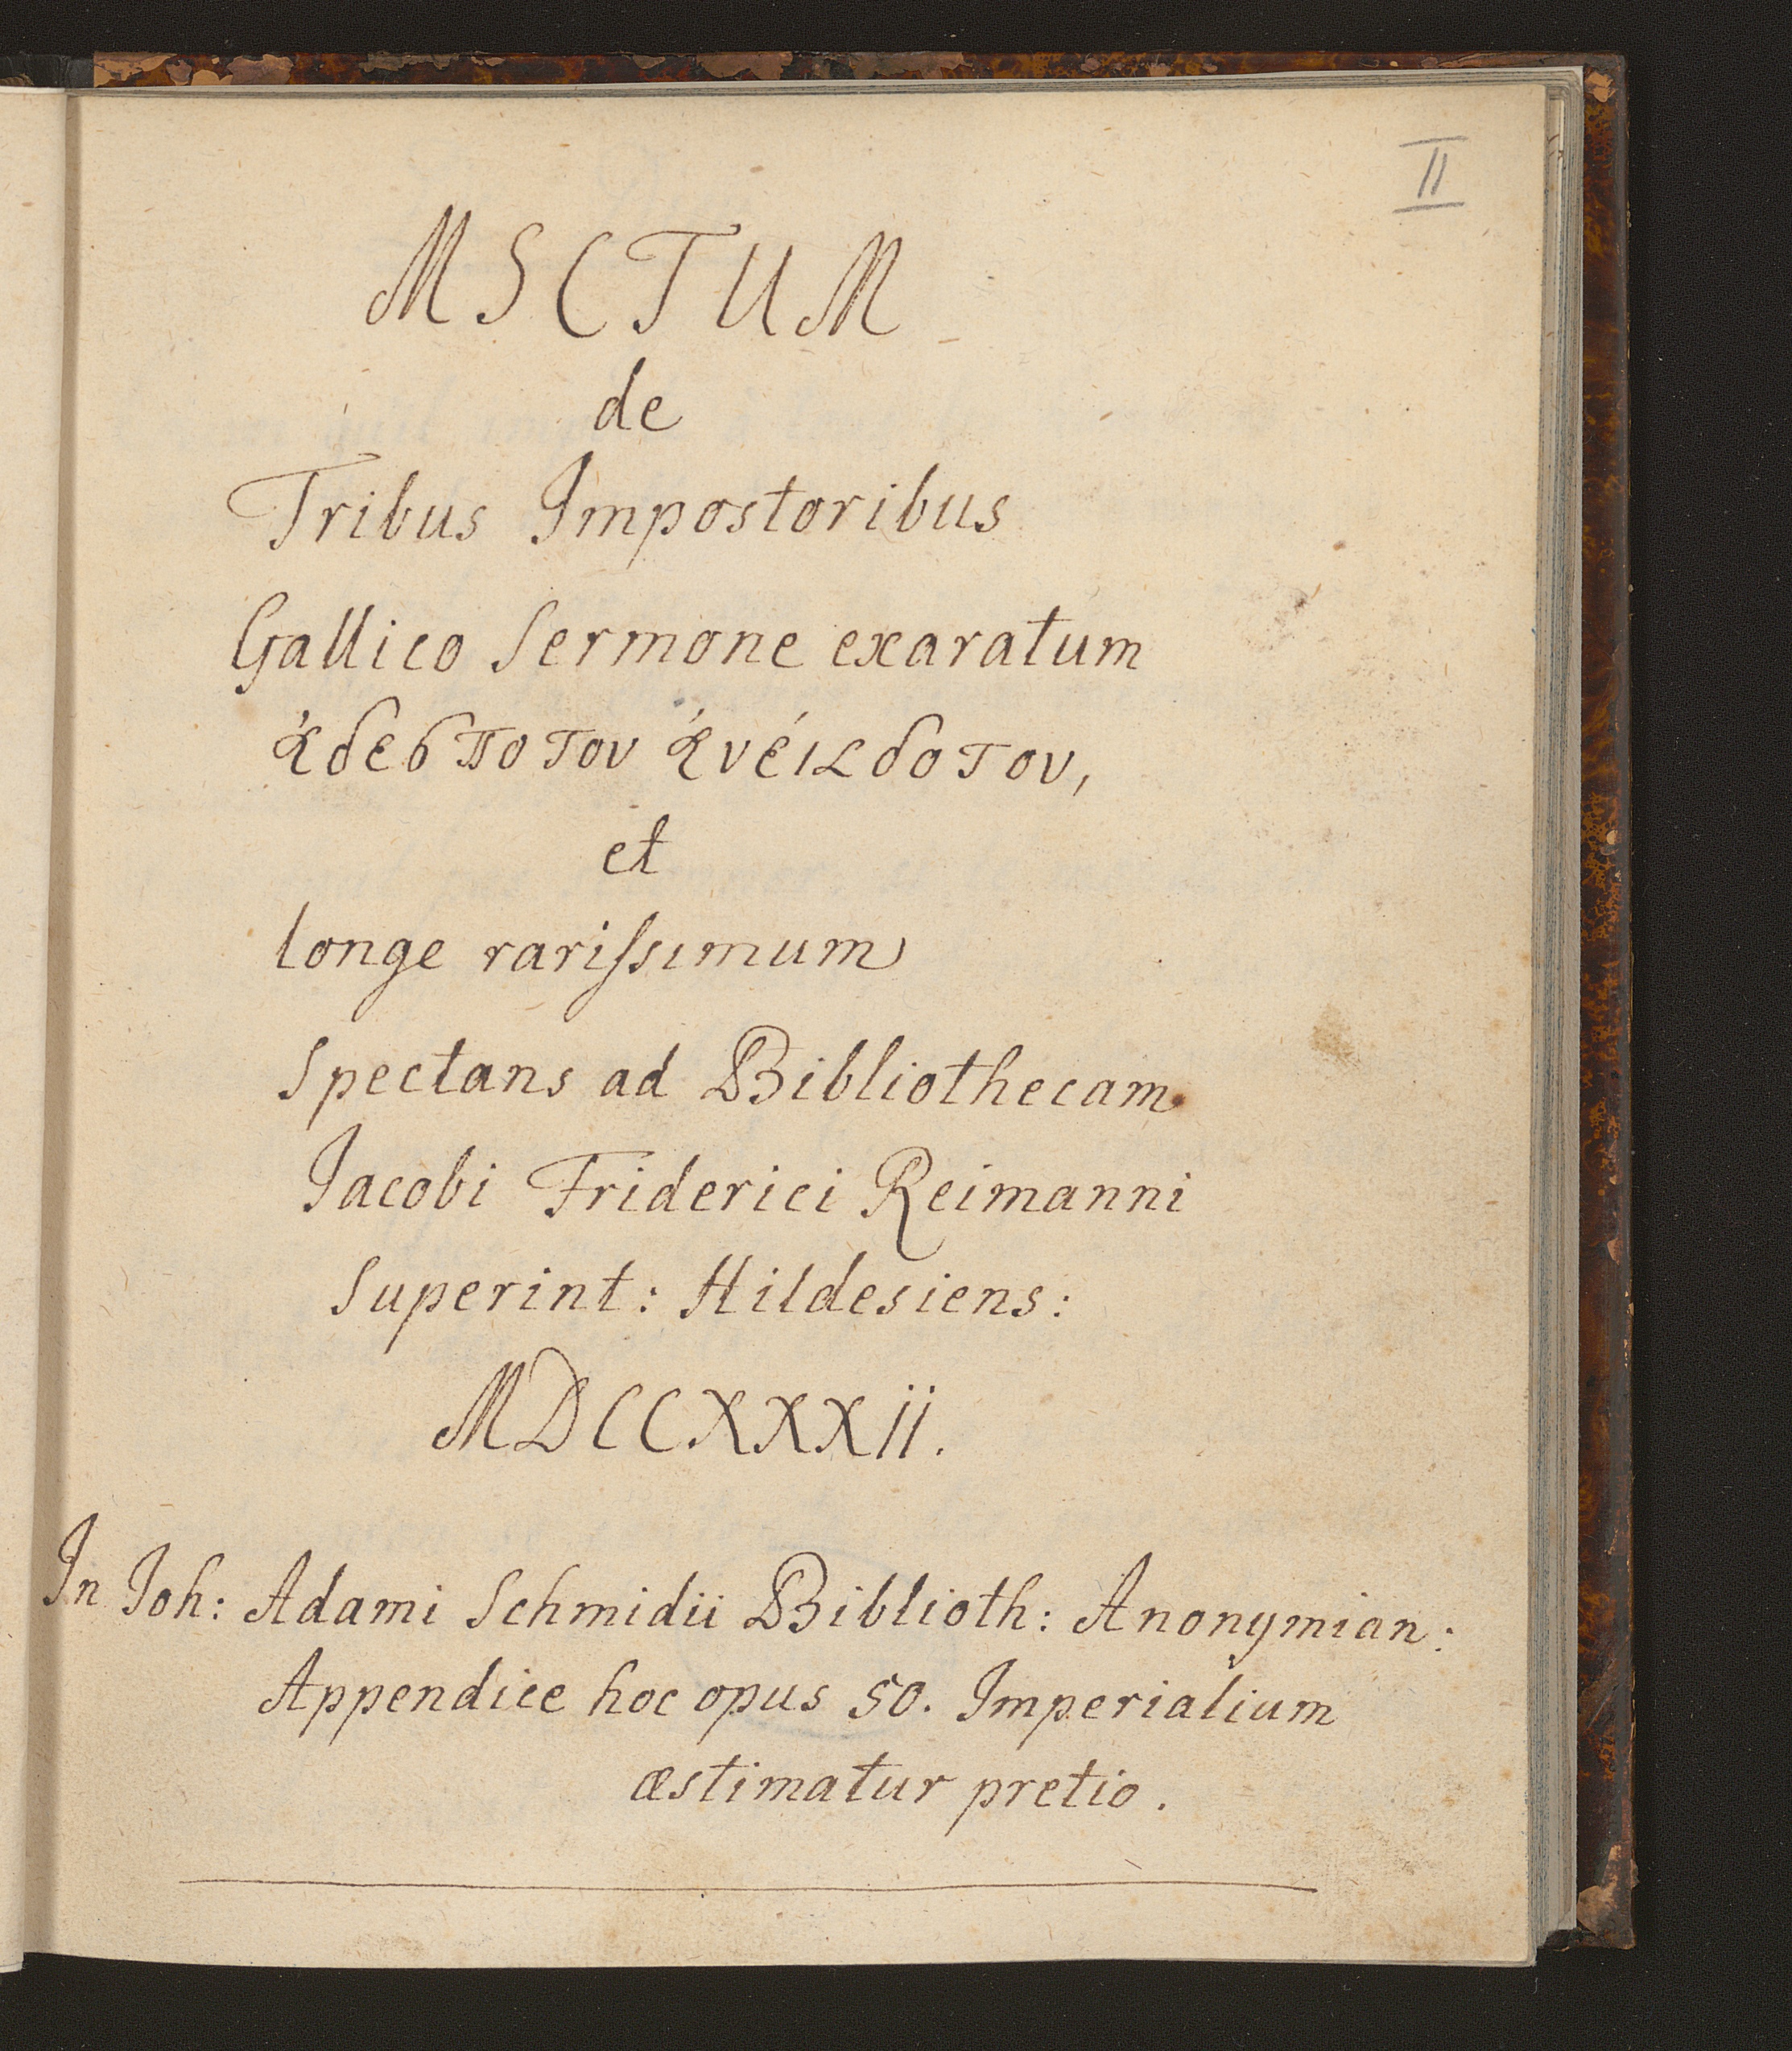 II
MSCTUM
de
Tribus Impostoribus
Gallico Sermone exaratum
ἀδεσποτον ἀνέκδοτον,
et
longe rarissimum
Spectans ad Bibliothecam
Jacobi Friderici Reimanni
Superint: Hildesiens:
MDCCXXXII.
In Joh: Adami Schmidii Biblioth: Anonymian:
Appendice hoc opus 50. Imperialium
æstimatur pretio.